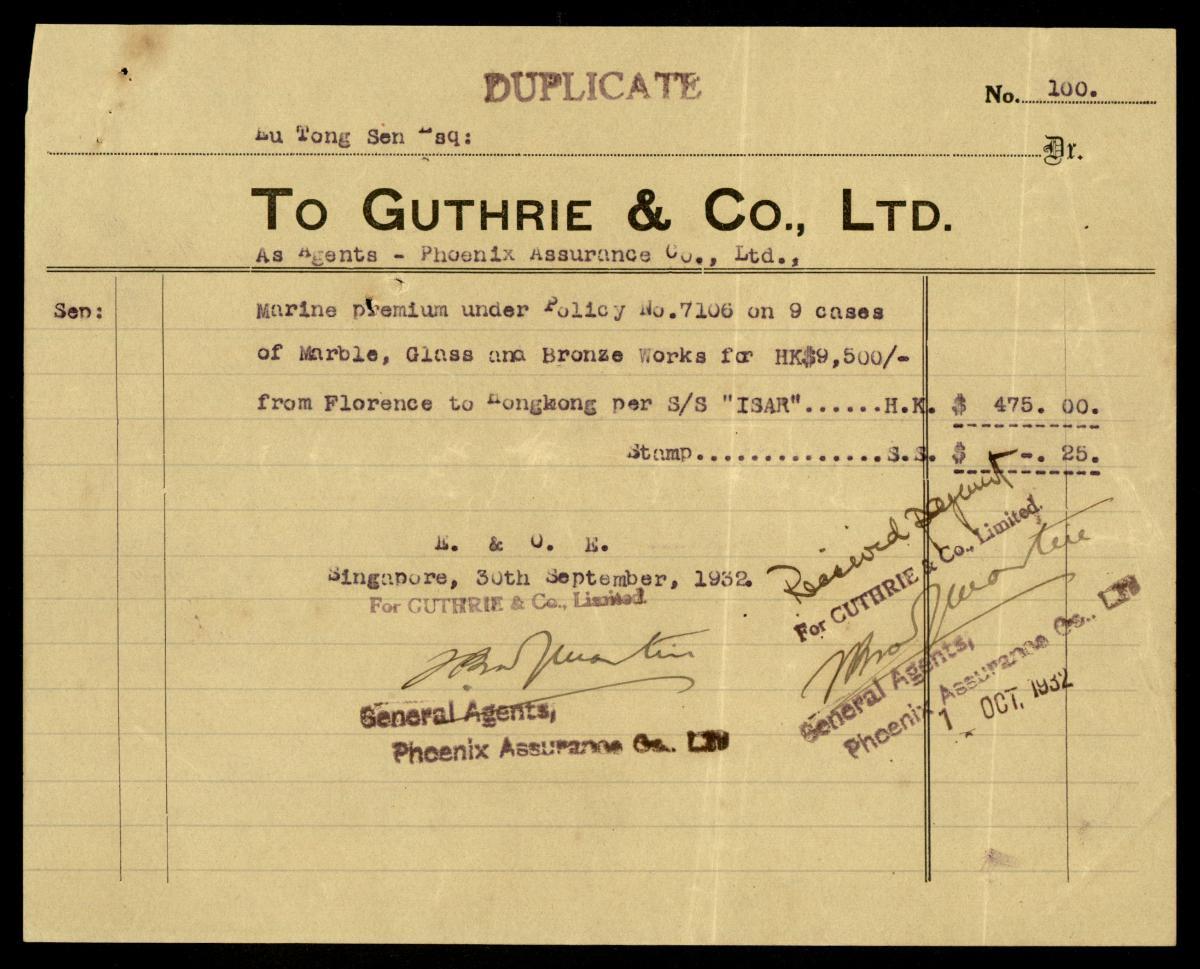 DUPLICATE
No. 100.
Eu Tong Sen Esq:
Dr.
TO GUTHRIE & CO., LTD.
As Agents - Phoenix Assurance Co., Ltd.,
Sep: Marine premium under Policy No.7106 on 9 cases
of Marble, Glass and Bronze Works for HK$9,500/-
from Florence to Hongkong per S/S "ISAR"......H.K. $ 475. 00.
Stamp..............S.S. $ -. 25.
Received Payment
For GUTHRIE & Co., Limited.
General Agents,
Phoenix Assurance Co., LTD
1 OCT. 1932
E. & O. E.
Singapore, 30th September, 1932.
For GUTHRIE & Co., Limited.
General Agents,
Phoenix Assurance Co., LTD